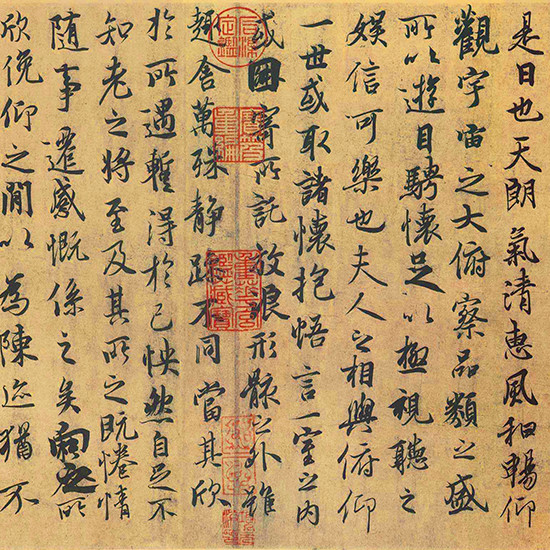 是日也天朗氣清惠風和暢仰
觀宇宙之大俯察品類之盛
所以遊目騁懷足以極視聽之
娛信可樂也夫人之相與俯仰
一世或取諸懷抱悟言一室之內
或因寄所託放浪形骸之外雖
趣舍萬殊靜躁不同當其欣
於所遇暫得於己怏然自足不
知老之將至及其所之既惓情
隨事遷感慨係之矣向之所
欣俛仰之閒以為陳迹猶不